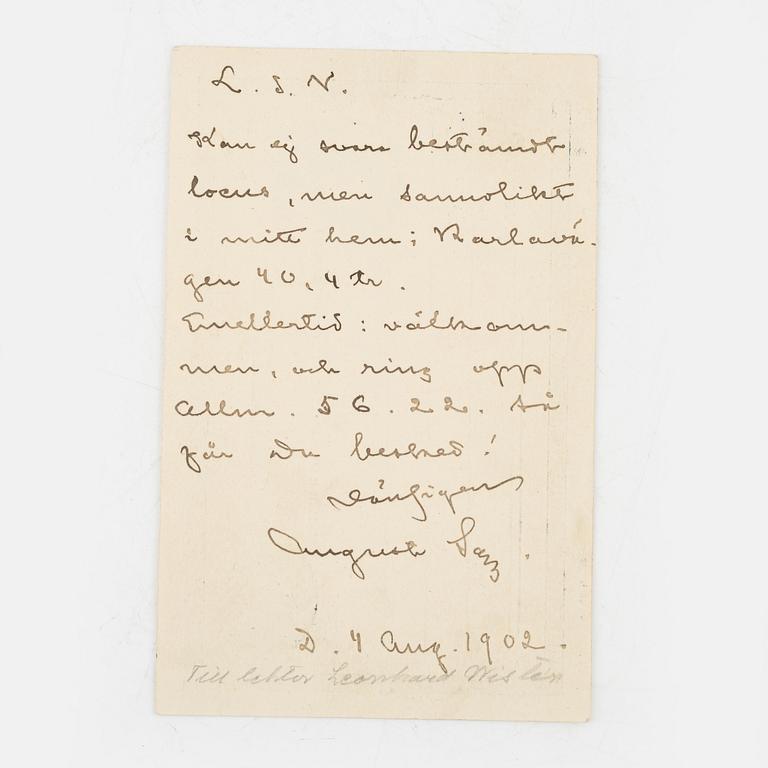 L. S. N.
Kan ej svara bestämdt
locus, men sannolikt
i mitt hem; Karlavä-
gen 40, 4 tr.
Emellertid: välkom-
men, och ring opp
Allm. 56.22. så
får Du besked!
August
D. 4 Aug. 1902.
Till lektor Leonhard